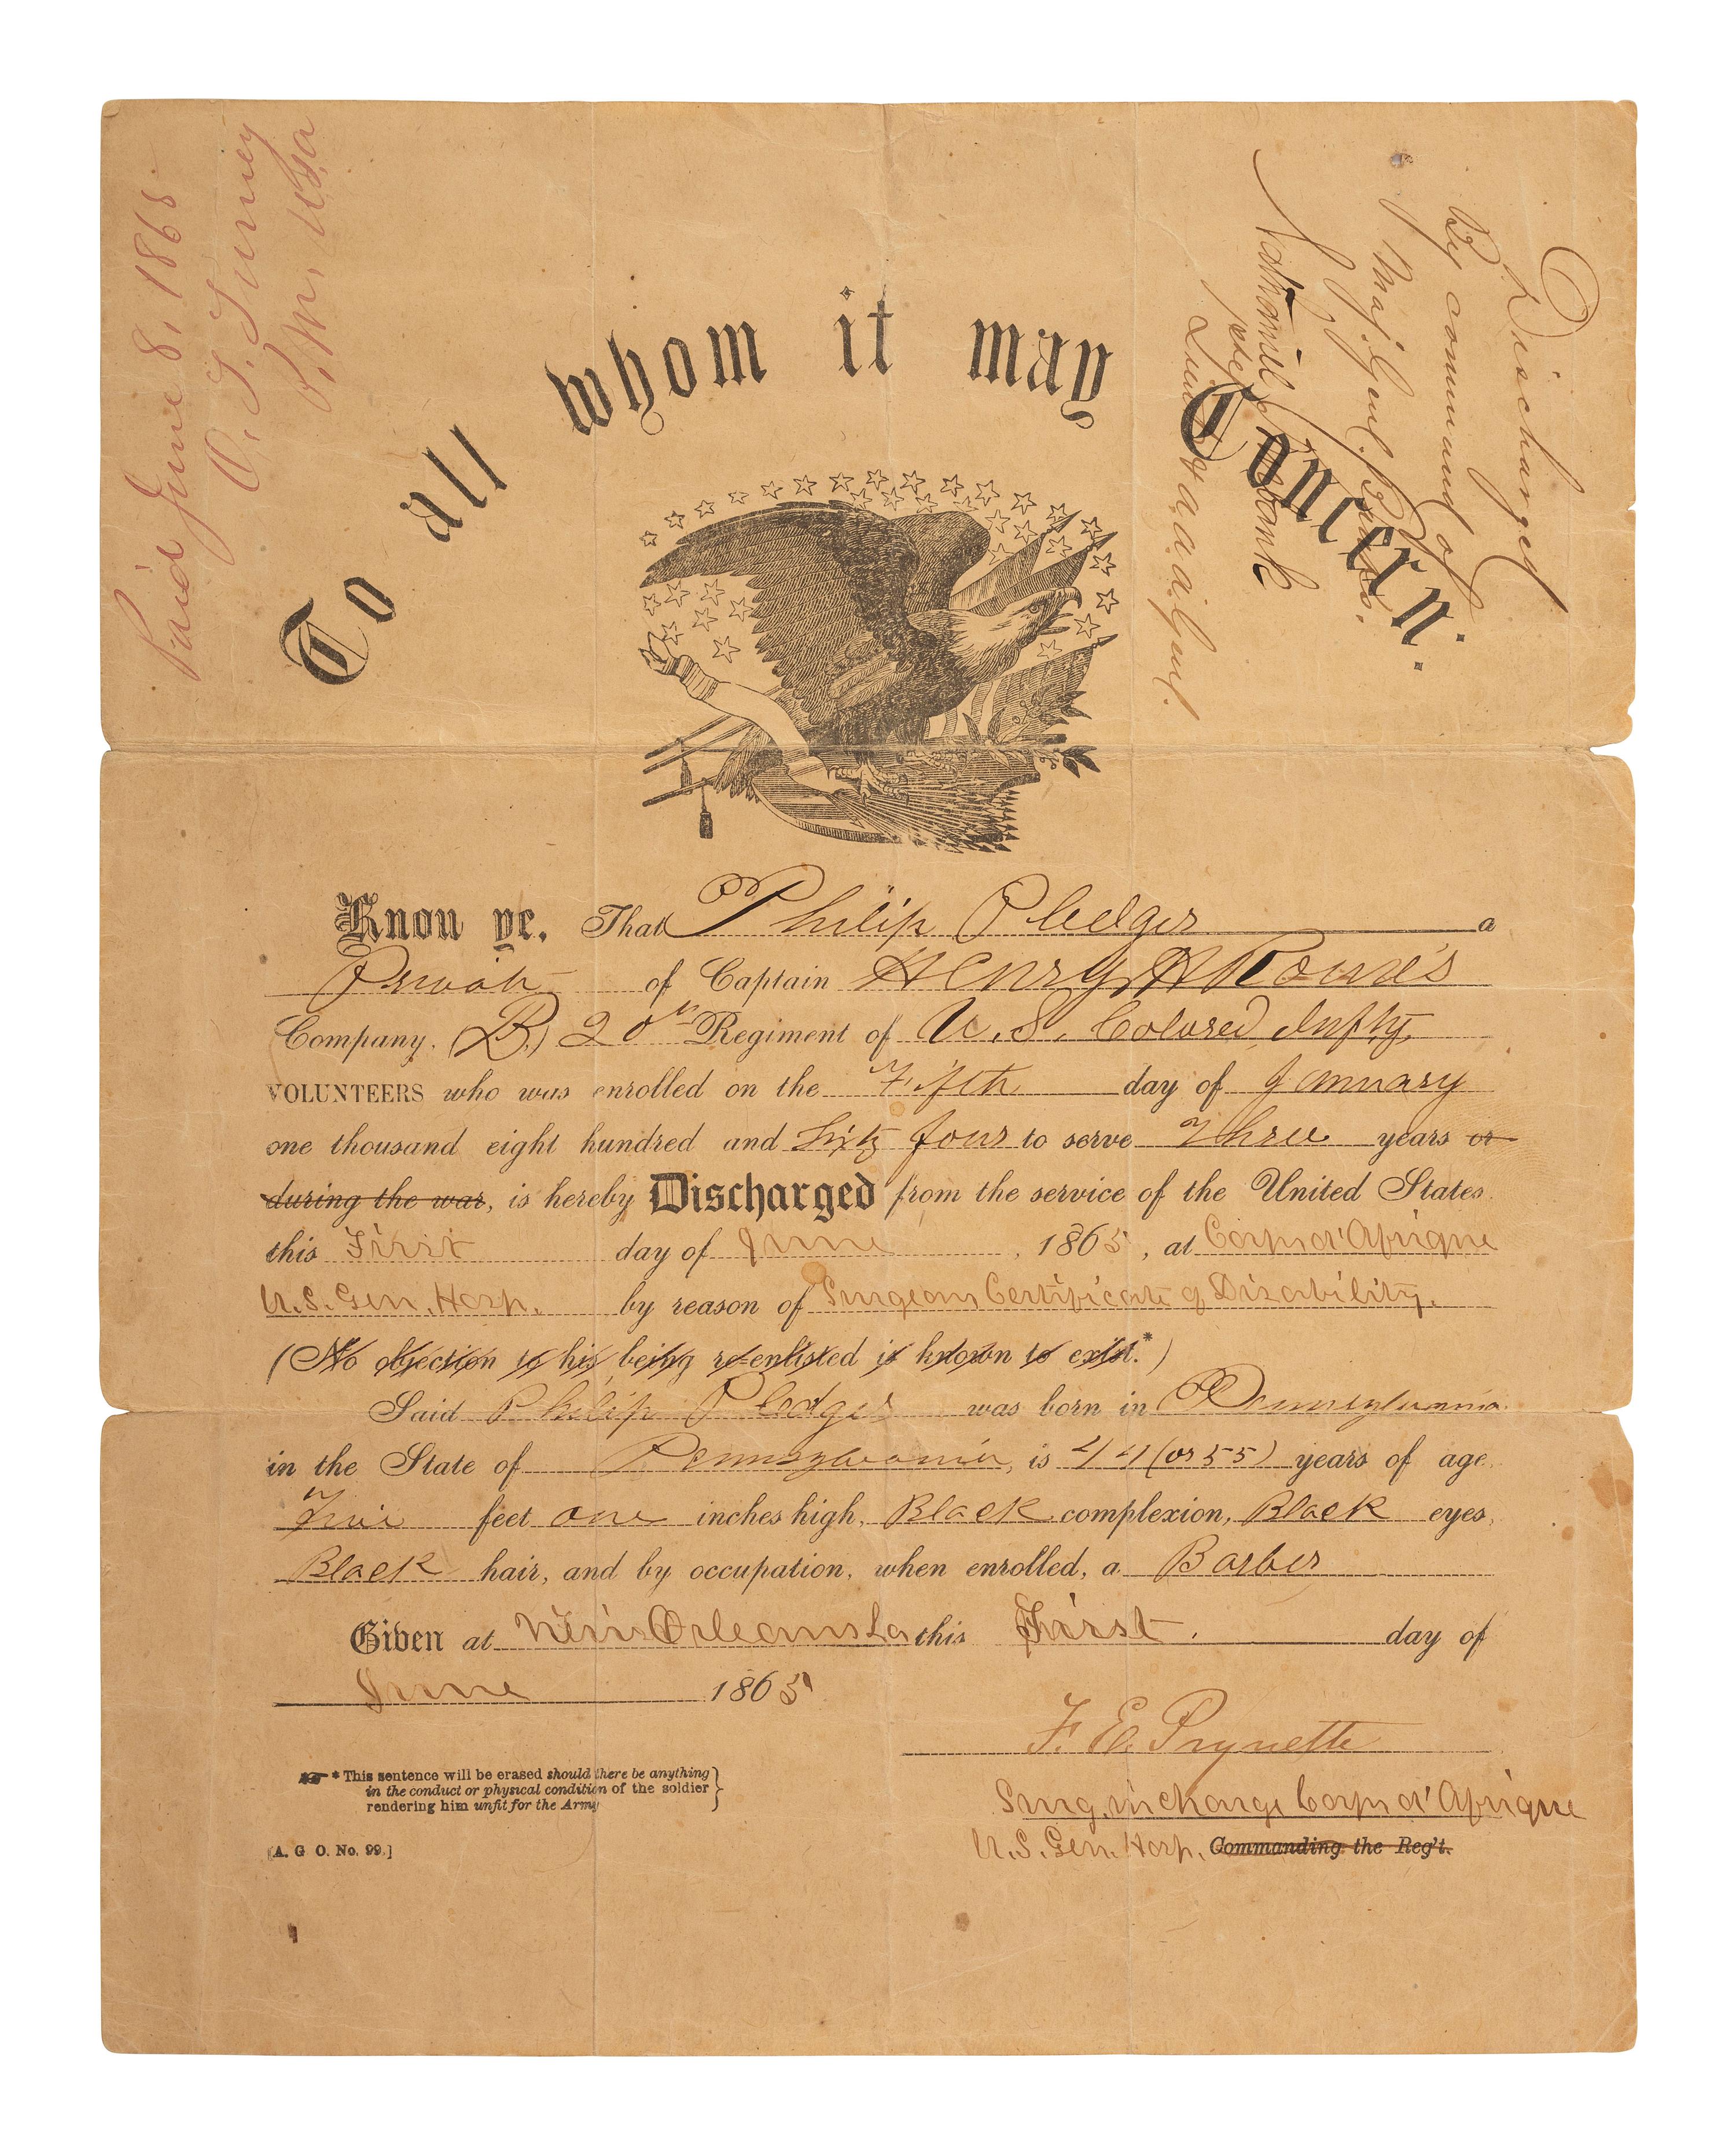 Paid June 8, 1865
P. M. USA
Discharged
by command of
Maj. Genl. Banks.
To all whom it may Concern.
Know ye, That Philip Pledger a
Private of Captain Henry A Rowe's
Company, (B,) 20th Regiment of U. S. Colored Infty,
VOLUNTEERS who was enrolled on the Fifth day of January
one thousand eight hundred and Sixty four to serve Three years or
during the war, is hereby Discharged from the service of the United States
this First day of June, 1865, at Corps d'Afrique
U.S. Gen. Hosp. by reason of Surgeons Certificate of Disability.
(No objection to his being re-enlisted is known to exist.*)
Said Philip Pledger was born in Pennsylvania
in the State of Pennsylvania, is 44 (or 55) years of age,
Five feet one inches high, Black complexion, Black eyes,
Black hair, and by occupation, when enrolled, a Barber
Given at New Orleans La this First day of
June 1865
F. E. Prynette
Surg. in charge Corps d'Afrique
U.S. Gen. Hosp. Commanding the Reg't.
* This sentence will be erased should there be anything
in the conduct or physical condition of the soldier
rendering him unfit for the Army
[A. G O. No. 99.]